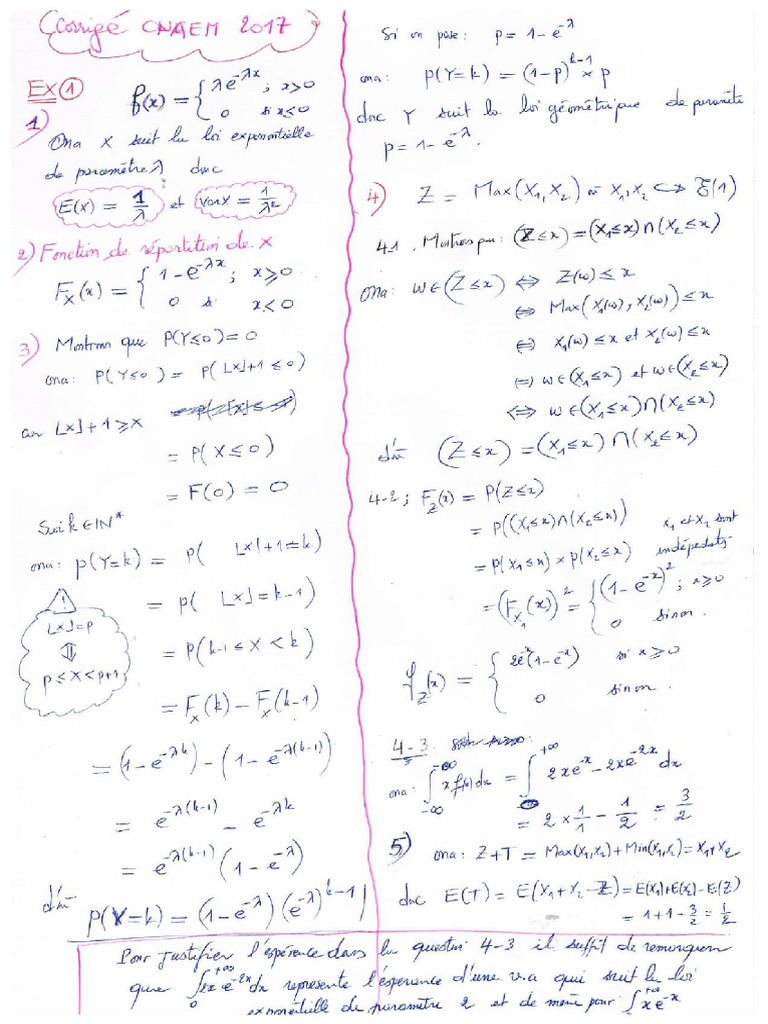 Corrigé CNAEM 2017
Ex 1
f(x) = { λe^{-λx} ; x>0
0 si x≤0
1)
On a X suit la loi exponentielle
de paramètre λ donc
E(X) = 1/λ et VarX = 1/λ²
2) Fonction de répartition de X
F_X(x) = { 1-e^{-λx} ; x≥0
0 si x<0
3) Montrons que P(Y≤0) = 0
ona: P(Y≤0) = P(⌊X⌋+1 ≤ 0)
car ⌊X⌋+1 ≥ X
= P(X≤0)
= F(0) = 0
Soit k∈IN*
ona: p(Y=k) = p( ⌊X⌋+1=k)
= p( ⌊X⌋=k-1)
!
⌊X⌋=p
⇕
p≤X<p+1
= P(k-1≤X<k)
= F_X(k) - F_X(k-1)
= (1-e^{-λk}) - (1-e^{-λ(k-1)})
= e^{-λ(k-1)} - e^{-λk}
= e^{-λ(k-1)} (1-e^{-λ})
d'où
p(Y=k) = (1-e^{-λ}) (e^{-λ})^{k-1}
Si on pose: p = 1-e^{-λ}
ona: p(Y=k) = (1-p)^{k-1} × p
donc Y suit la loi géométrique de paramètre
p = 1-e^{-λ}.
4) Z = Max(X₁,X₂) où X₁,X₂ ↪ ℰ(1)
4.1, Montrons que: (Z≤x) = (X₁≤x)∩(X₂≤x)
ona: w∈(Z≤x) ⇔ Z(w)≤x
⇔ Max(X₁(w), X₂(w)) ≤ x
⇔ X₁(w)≤x et X₂(w)≤x
⇔ w∈(X₁≤x) et w∈(X₂≤x)
⇔ w∈(X₁≤x)∩(X₂≤x)
d'où (Z≤x) = (X₁≤x)∩(X₂≤x)
4-2; F_Z(x) = P(Z≤x)
= P((X₁≤x)∩(X₂≤x))
X₁ et X₂ sont
= P(X₁≤x) × p(X₂≤x) indépendants
= (F_{X₁}(x))² = { (1-e^{-x})² ; x≥0
0 sinon.
f_Z(x) = { 2e^{-x}(1-e^{-x}) si x≥0
0 sinon.
4-3
ona: ∫_{-∞}^{+∞} x f(x) dx = ∫_0^{+∞} 2xe^{-x} - 2xe^{-2x} dx
= 2×1/1 - 1/2 = 3/2
5) ona: Z+T = Max(X₁,X₂)+Min(X₁,X₂)=X₁+X₂
donc E(T) = E(X₁+X₂-Z)=E(X₁)+E(X₂)-E(Z)
= 1+1-3/2 = 1/2
Pour justifier l'espérence dans la question 4-3 il suffit de remarquer
que ∫_0^{+∞} 2xe^{-2x}dx represente l'esperance d'une v.a qui suit la loi
exponentielle de paramètre 2 et de même pour ∫_0^{+∞} x e^{-x}